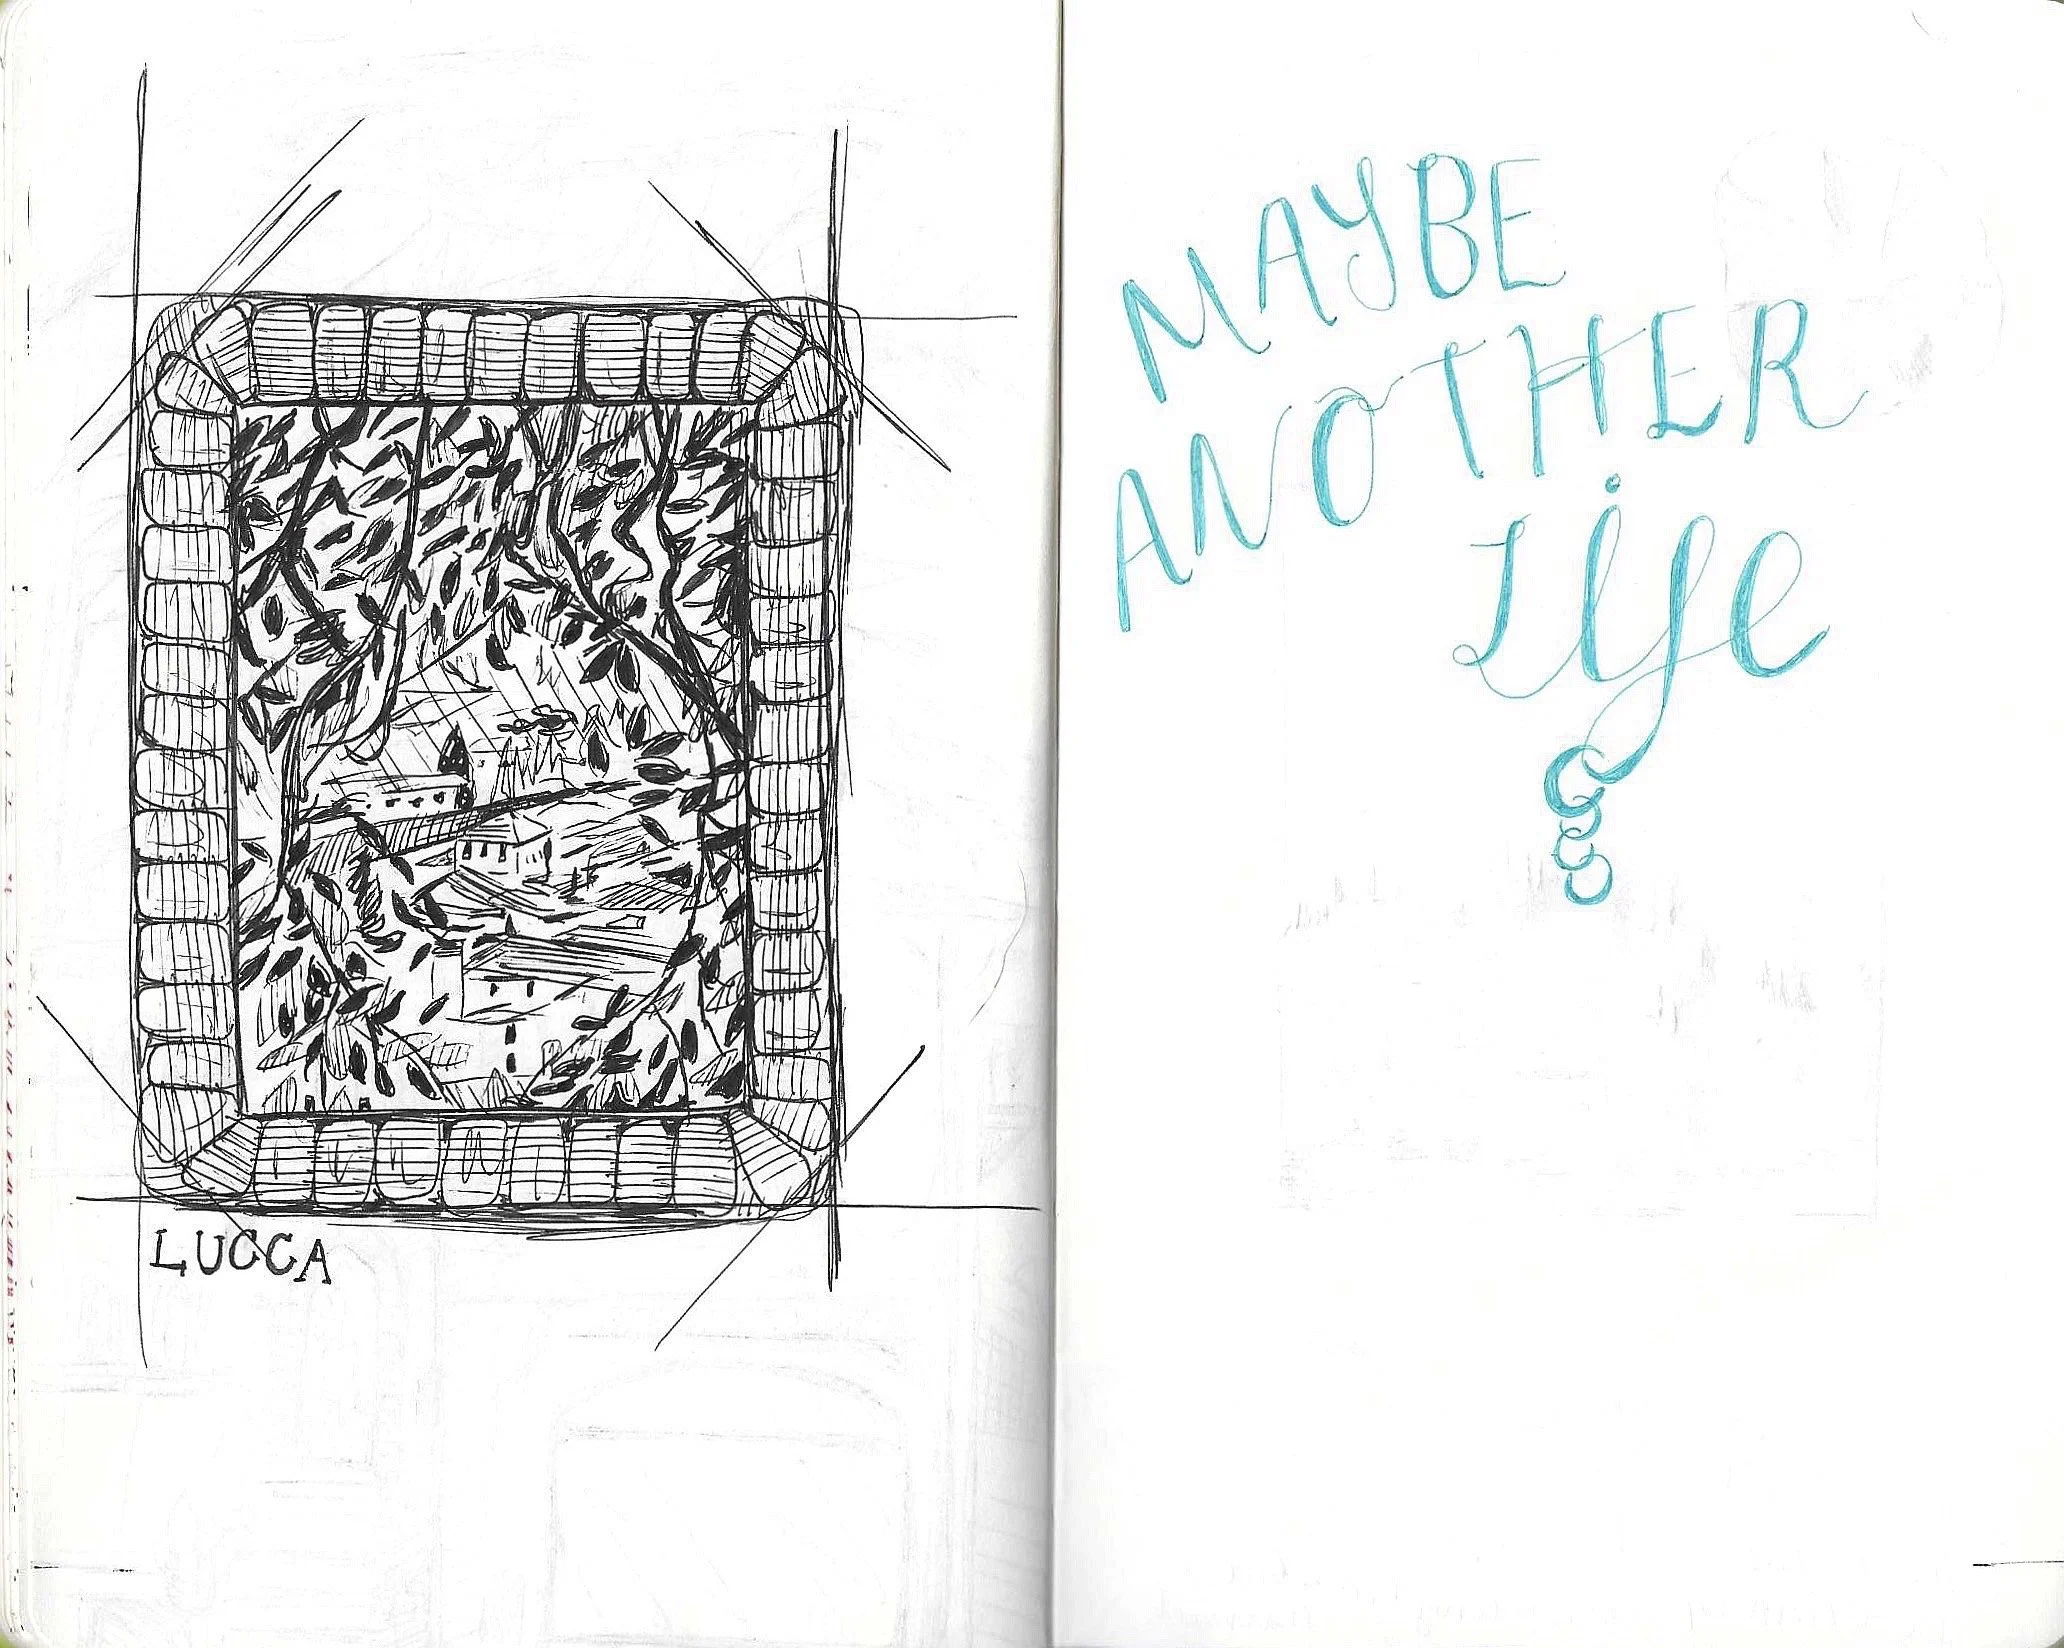 LUCCA
MAYBE
ANOTHER
Life